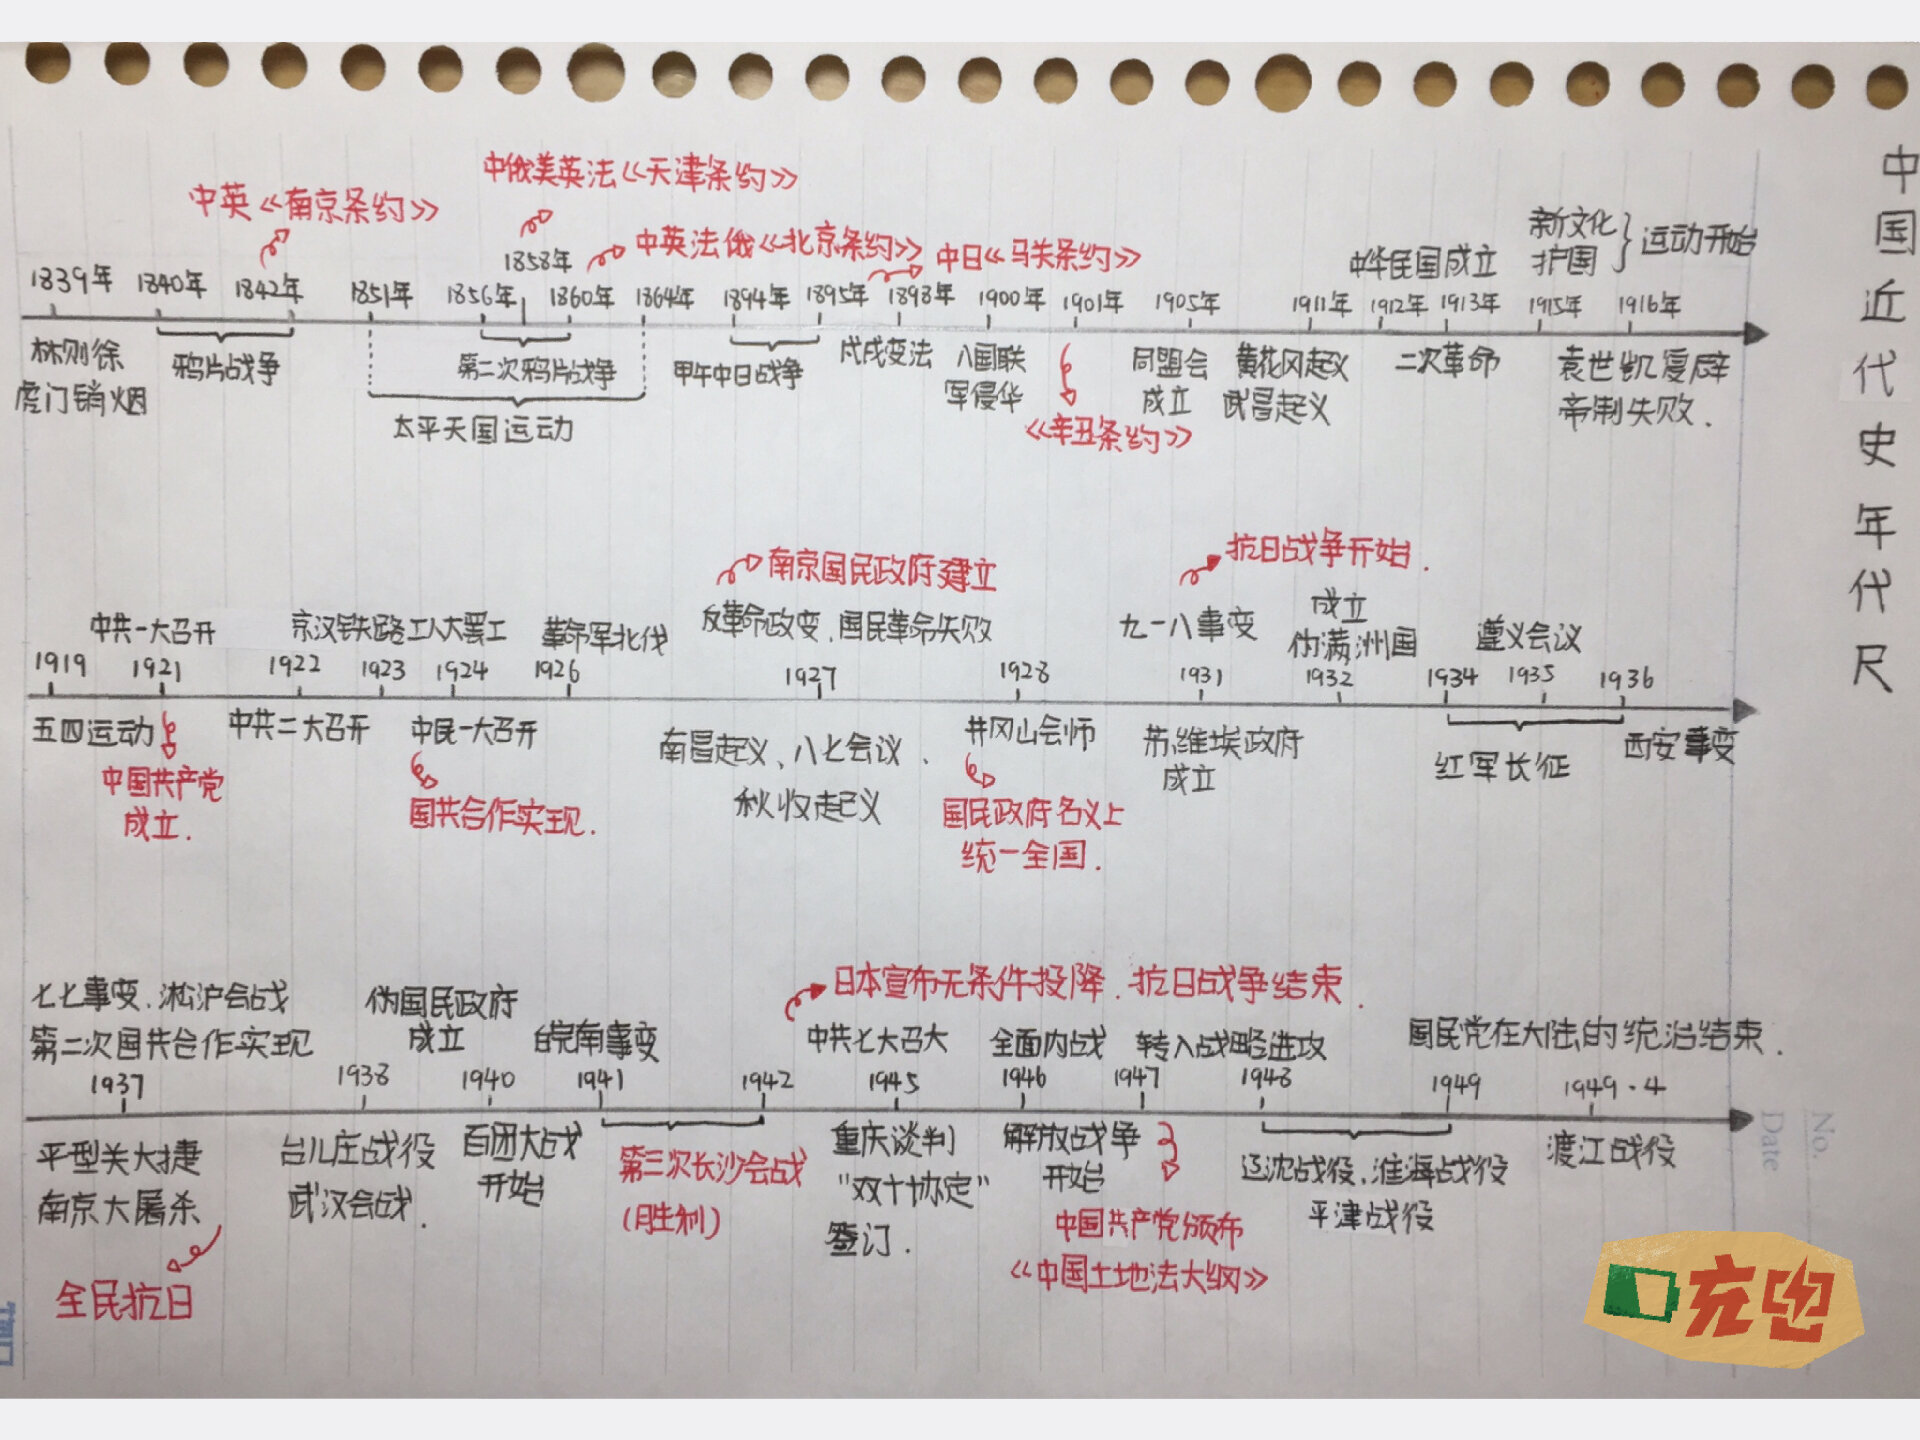 中国近代史年代尺
中俄美英法《天津条约》
中英《南京条约》
中英法俄《北京条约》
中日《马关条约》
中华民国成立
新文化
护国
运动开始
1839年 1840年 1842年 1851年 1856年 1858年 1860年 1864年 1894年 1895年 1898年 1900年 1901年 1905年 1911年 1912年 1913年 1915年 1916年
林则徐
虎门销烟
鸦片战争
第二次鸦片战争
太平天国运动
甲午中日战争
戊戌变法
八国联
军侵华
《辛丑条约》
同盟会
成立
黄花冈起义
武昌起义
二次革命
袁世凯复辟
帝制失败.
南京国民政府建立
抗日战争开始.
中共一大召开
京汉铁路工人大罢工
革命军北伐
反革命政变、国民革命失败
九一八事变
成立
伪满洲国
遵义会议
1919 1921 1922 1923 1924 1926 1927 1928 1931 1932 1934 1935 1936
五四运动
中国共产党
成立.
中共二大召开
中民一大召开
国共合作实现.
南昌起义、八七会议、
秋收起义
井冈山会师
国民政府名义上
统一全国.
苏维埃政府
成立
红军长征
西安事变
日本宣布无条件投降、抗日战争结束.
七七事变、淞沪会战
第二次国共合作实现
伪国民政府
成立
皖南事变
中共七大召大
全面内战
转入战略进攻
国民党在大陆的统治结束.
1937 1938 1940 1941 1942 1945 1946 1947 1948 1949 1949.4
平型关大捷
南京大屠杀
全民抗日
台儿庄战役
武汉会战.
百团大战
开始
第三次长沙会战
(胜利)
重庆谈判
"双十协定"
签订.
解放战争
开始
中国共产党颁布
《中国土地法大纲》
辽沈战役、淮海战役
平津战役
渡江战役
No.
Date
充电